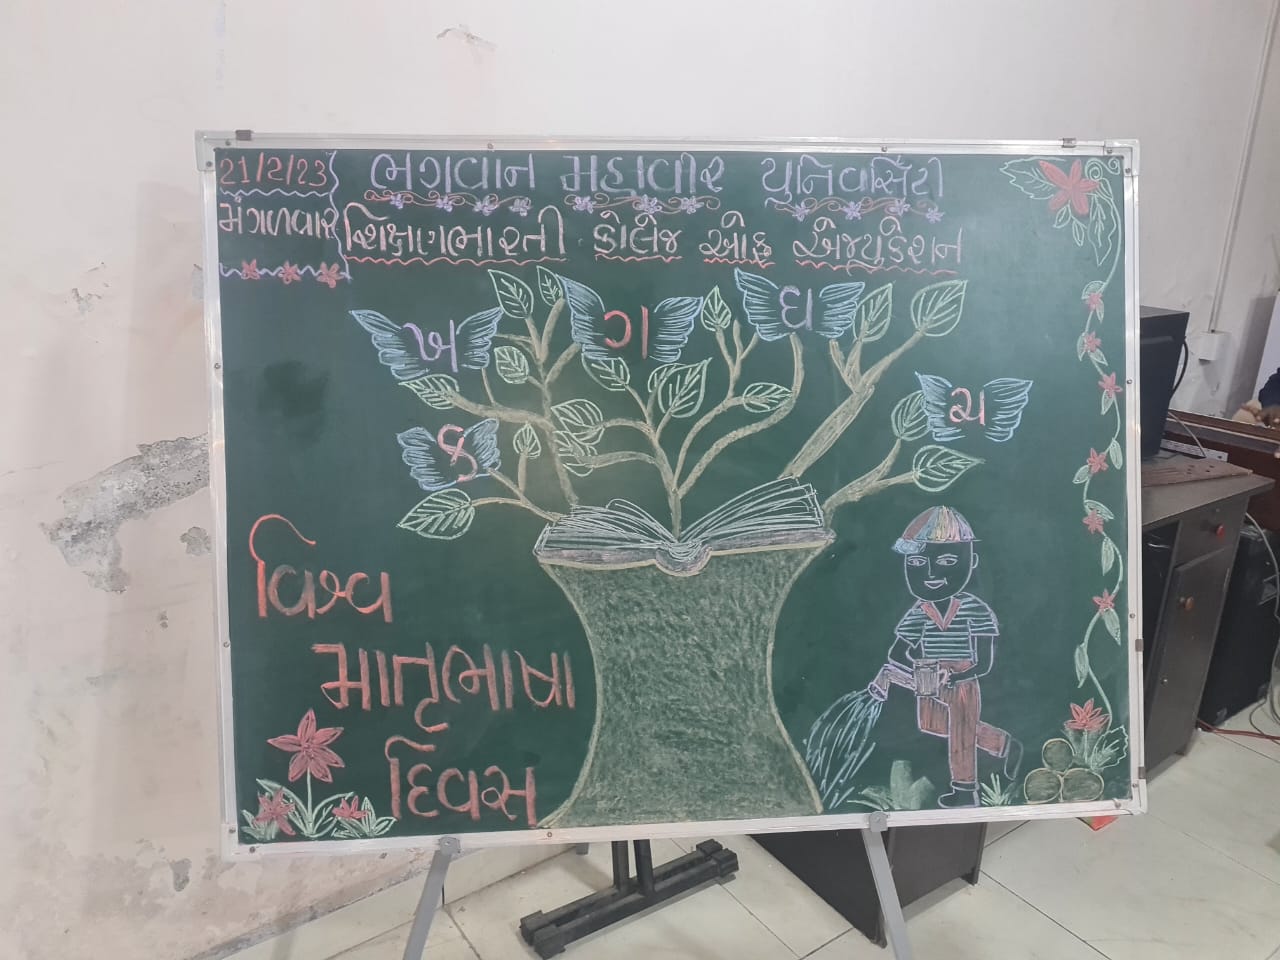 21/2/23
મંગળવાર
ભગવાન મહાવીર યુનિવર્સિટી
શિક્ષણભારતી કોલેજ ઓફ એજ્યુકેશન
ક
ખ
ગ
ઘ
ચ
વિશ્વ
માતૃભાષા
દિવસ